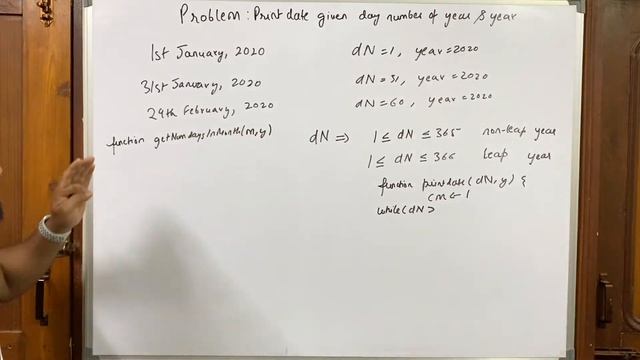 Problem: Print date given day number of year & year
1st January, 2020
dN = 1, year = 2020
31st January, 2020
dN = 31, year = 2020
29th February, 2020
dN = 60, year = 2020
function getNumdaysInMonth(m,y)
dN ⇒ 1 ≤ dN ≤ 365 non-leap year
1 ≤ dN ≤ 366 leap year
function printdate(dN,y) {
cm ← 1
while(dN >